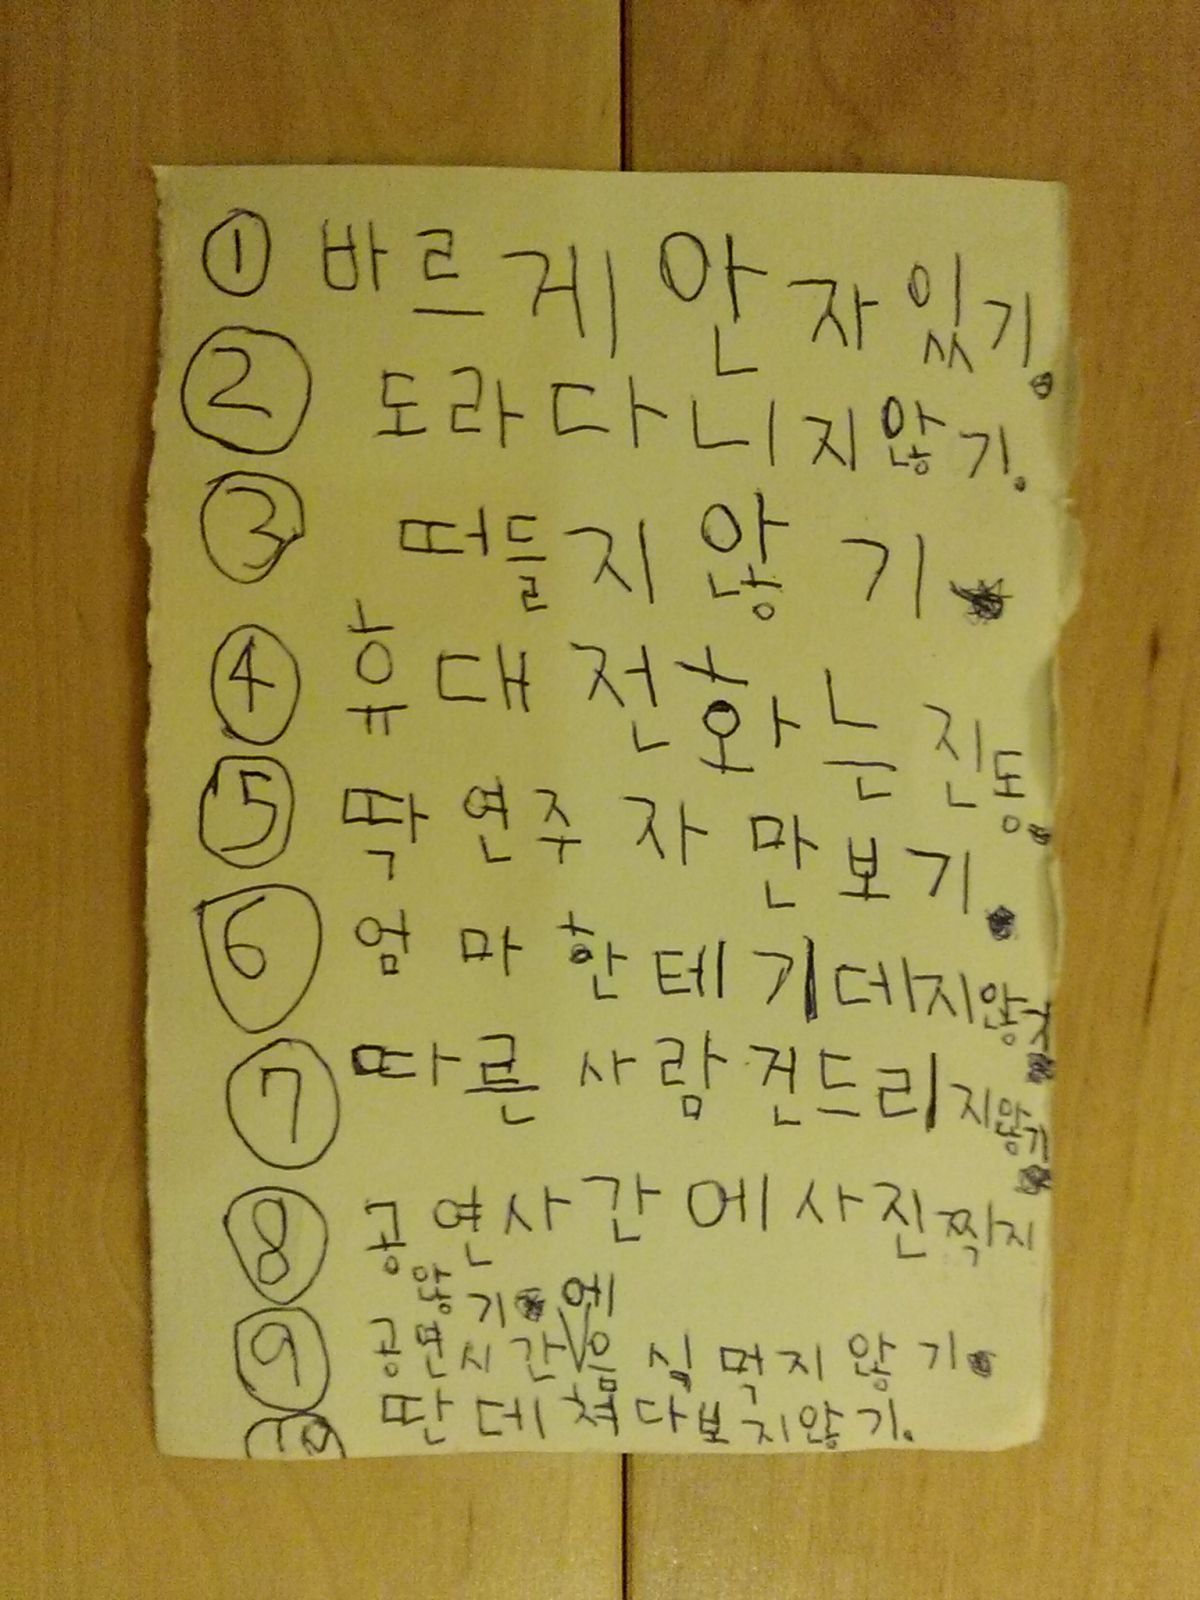 ① 바르게 안자있기.
② 도라다니지않기.
③ 떠들지 않기.
④ 휴대전화는 진동.
⑤ 딱 연주자만보기.
⑥ 엄마한테기데지않기.
⑦ 따른사람건드리지않기.
⑧ 공연사간에사진짝지
않기.
⑨ 공연시간에음식먹지않기.
딴데쳐다보지않기.